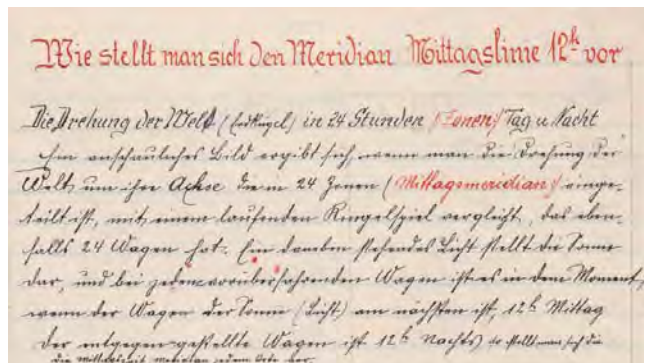 Wie stellt man sich den Meridian Mittagslinie 12h vor
Die Drehung der Welt (Erdkugel) in 24 Stunden (Zonen) Tag u. Nacht
Ein anschauliches Bild ergibt sich, wenn man die Drehung der
Welt um ihre Achse die in 24 Zonen (Mittagsmeridian) einge-
teilt ist, mit einem laufenden Ringelspiel vergleicht, das eben-
falls 24 Wagen hat. Ein daneben stehendes Licht stellt die Sonne
dar, und bei jedem vorüberfahrenden Wagen ist es in dem Moment,
wenn der Wagen der Sonne (Licht) am nächsten ist, 12h Mittag
Der entgegen-gestellte Wagen ist 12h Nachts so stellt man sich die